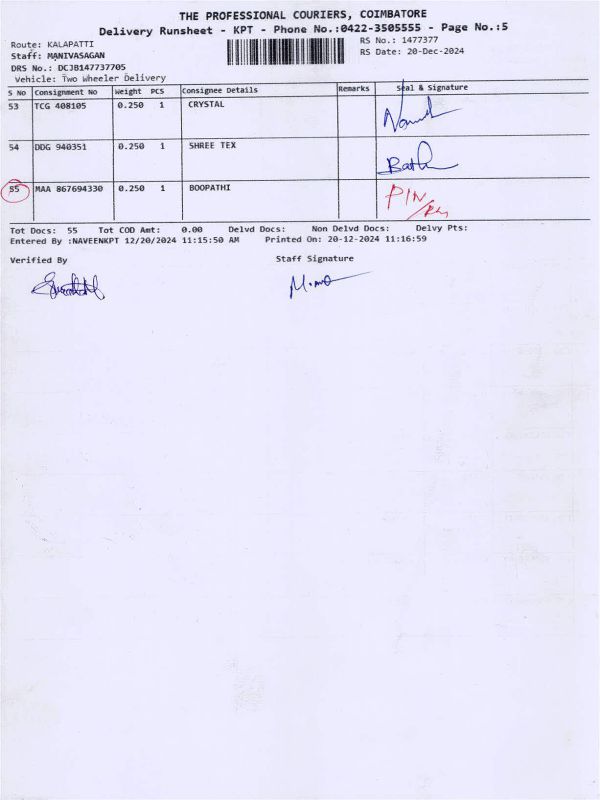 THE PROFESSIONAL COURIERS, COIMBATORE
Delivery Runsheet - KPT - Phone No.:0422-3505555 - Page No.:5
Route: KALAPATTI RS No.: 1477377
Staff: MANIVASAGAN RS Date: 20-Dec-2024
DRS No.: DCJB147737705
Vehicle: Two Wheeler Delivery
S No Consignment No Weight PCS Consignee Details Remarks Seal & Signature
53 TCG 408105 0.250 1 CRYSTAL
54 DDG 940351 0.250 1 SHREE TEX
55 MAA 867694330 0.250 1 BOOPATHI PIN
Tot Docs: 55 Tot COD Amt: 0.00 Delvd Docs: Non Delvd Docs: Delvy Pts:
Entered By :NAVEENKPT 12/20/2024 11:15:50 AM Printed On: 20-12-2024 11:16:59
Verified By Staff Signature